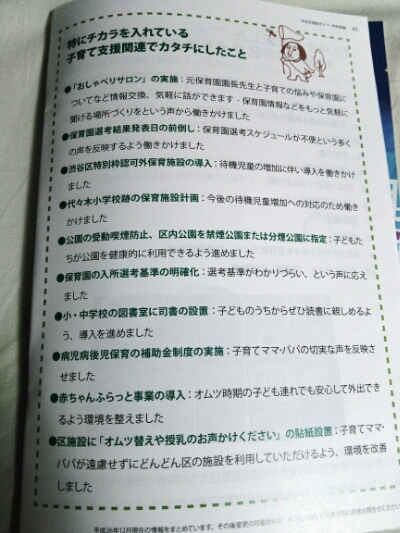 特にチカラを入れている
子育て支援関連でカタチにしたこと
●「おしゃべりサロン」の実施：元保育園園長先生と子育ての悩みや保育園に
ついてなど情報交換、気軽に話ができます・保育園情報などをもっと気軽に
聞ける場所づくりをという声から働きかけました
●保育園選考結果発表日の前倒し：保育園選考スケジュールが不便という多く
の声を反映するよう働きかけました
●渋谷区特別枠認可外保育施設の導入：待機児童の増加に伴い導入を働きかけ
ました
●代々木小学校跡の保育施設計画：今後の待機児童増加への対応のため働き
かけました
●公園の受動喫煙防止、区内公園を禁煙公園または分煙公園に指定：子どもた
ちが公園を健康的に利用できるよう進めました
●保育園の入所選考基準の明確化：選考基準がわかりづらい、という声に応え
ました
●小・中学校の図書室に司書の設置：子どものうちからぜひ読書に親しめるよ
う、導入を進めました
●病児病後児保育の補助金制度の実施：子育てママ・パパの切実な声を反映さ
せました
●赤ちゃんふらっと事業の導入：オムツ時期の子ども連れでも安心して外出で
きるよう環境を整えました
●区施設に「オムツ替えや授乳のお声かけください」の貼紙設置：子育てママ・
パパが遠慮せずにどんどん区の施設を利用していただけるよう、環境を改善
しました
平成26年12月現在の情報をまとめています。その後変更の可能性